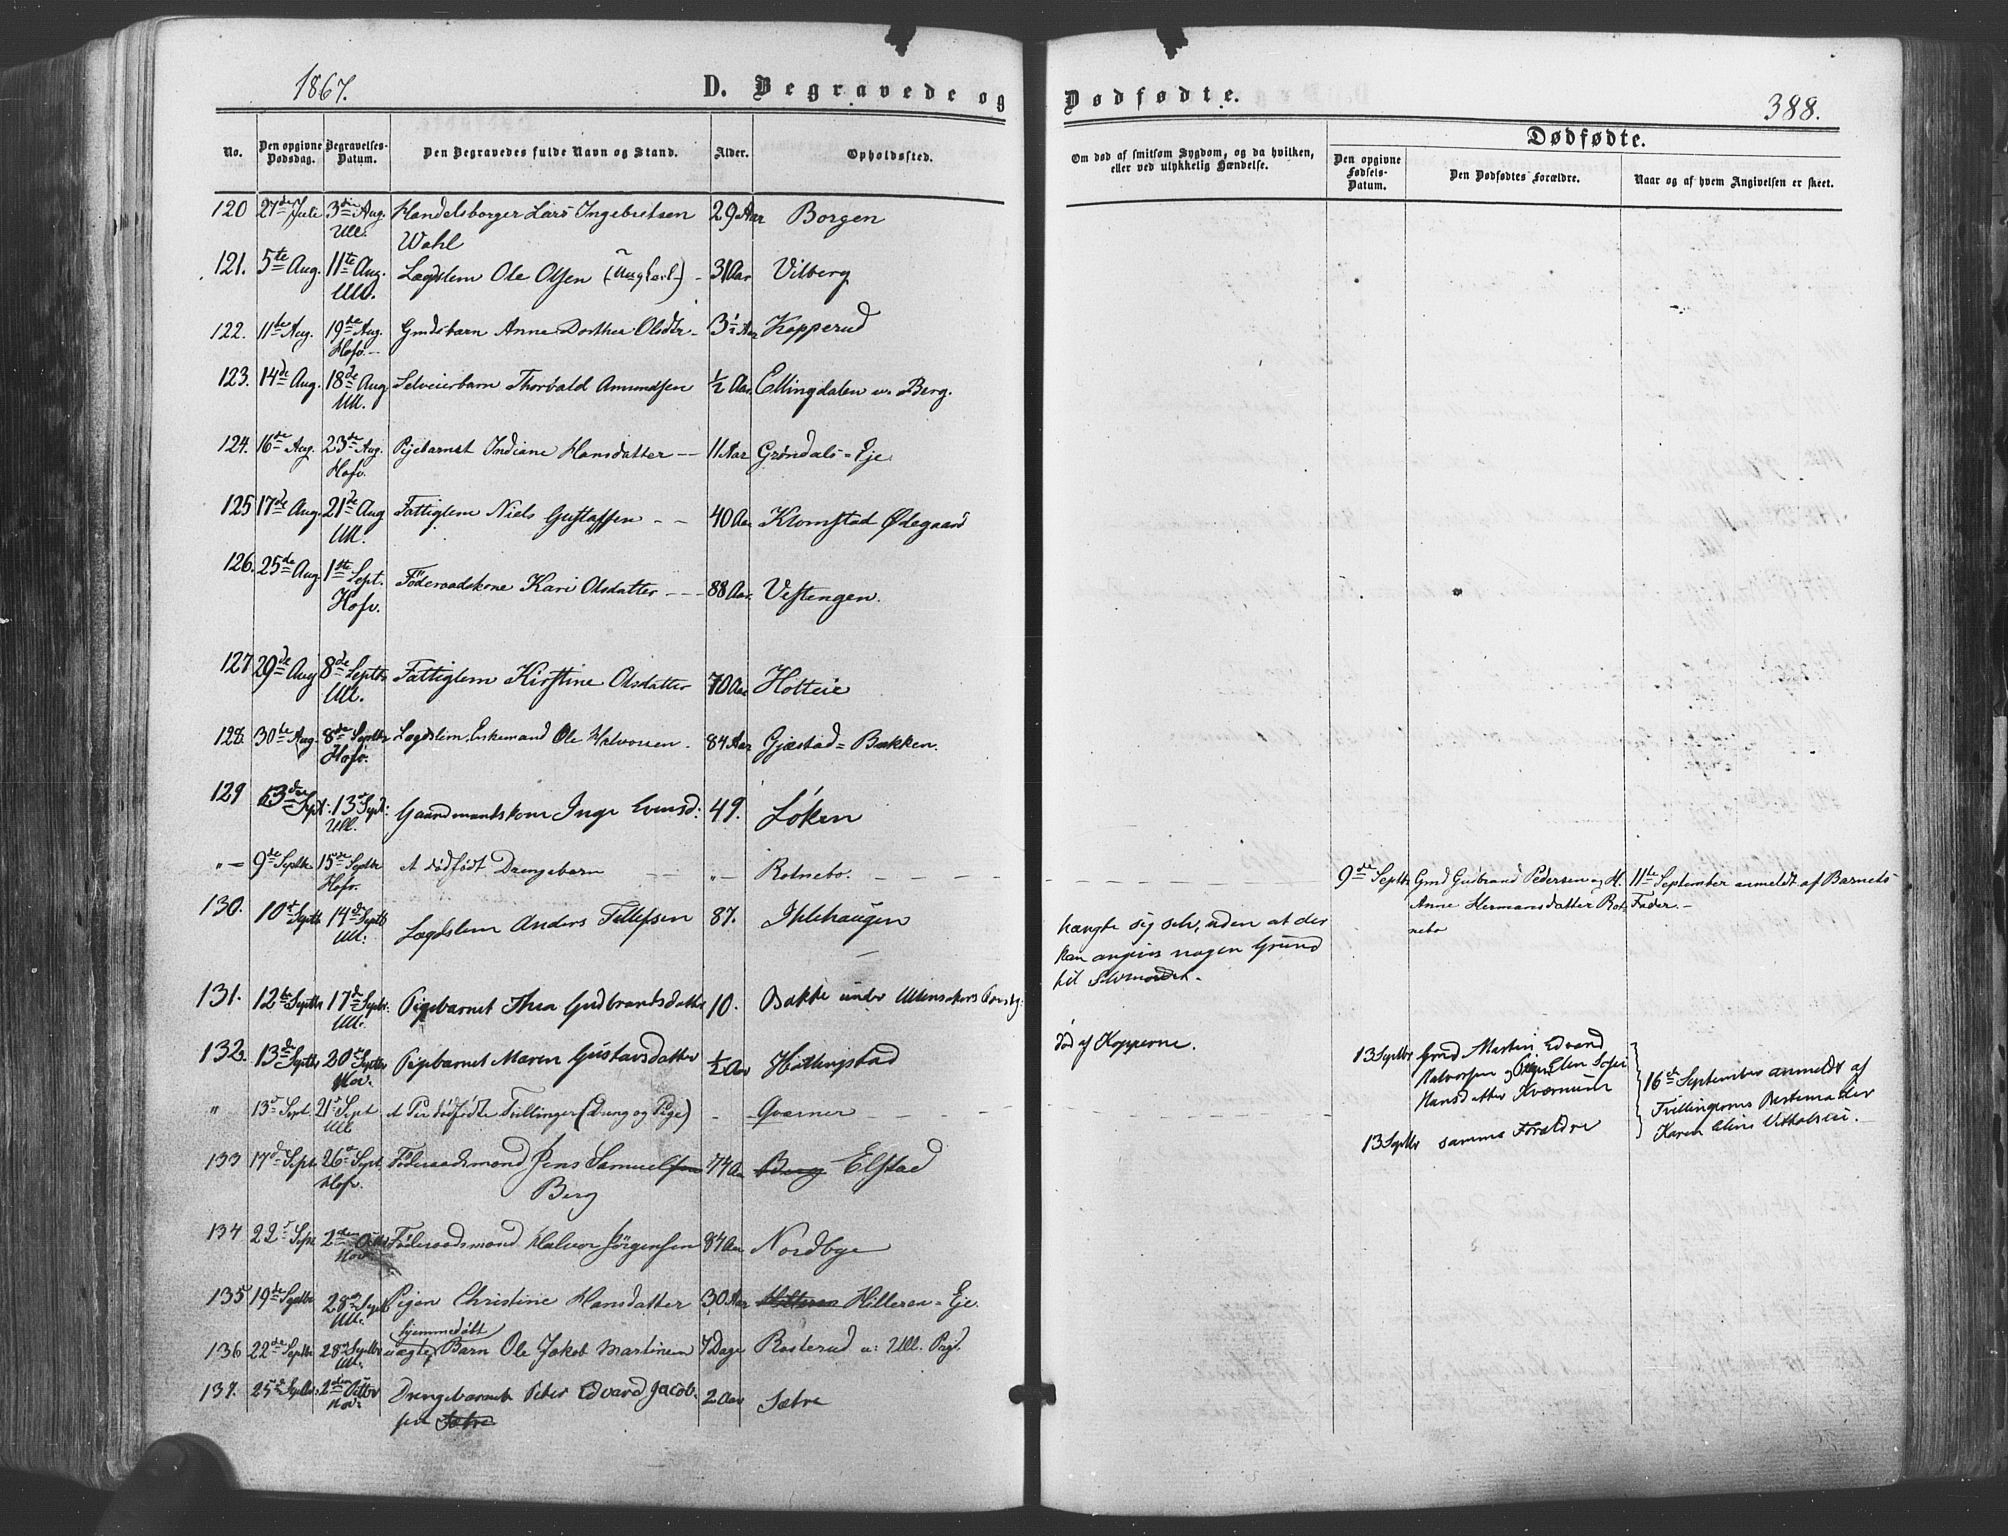 1867.
D. Begravede og
Dødfødte.
388.
No.
Den opgivne Dødsdag.
Begravelses-Datum.
Den Begravedes fulde Navn og Stand.
Alder.
Opholdssted.
Om død af smitsom Sygdom, og da hvilken, eller ved ulykkelig Hændelse.
Dødfødte.
Den opgivne Fødsels-Datum.
Den Dødfødtes Forældre.
Naar og af hvem Angivelsen er skeet.
120 27de Juli 3die Aug. Handelsborger Lars Ingebretsen 29 Aar Borgen
Ull. Wahl
121. 5te Aug. 11te Aug. Lægdslem Ole Olsen (Ungkarl) - 31 Aar Vilberg
Ull.
122. 11te Aug. 19de Aug. Gmdsbarn Anne Dorthea Olsdtr - 3½ Aar Kopperud
Hofv.
123. 14de Aug. 18de Aug Selveierbarn Thorvald Amundsen ½ Aar. Ellingdalen u. Berg.
Ull.
124. 16de Aug. 23de Aug. Pigebarnet Indiane Hansdatter -- 11 Aar Grøndals-Eje
Hofv.
125 17de Aug. 21de Aug Fattiglem Niels Gustaffsen - - 40 Aar Klomstad Ødegaard
Ull.
126. 25de Aug 1ste Sept. Föderaadskone Kari Olsdatter --- 88 Aar. Vestengen.
Hofv.
127 29de Aug 8de Septbr Fattiglem Kirstine Olsdatter 70 Aar Holteie
Ull.
128. 30te Aug. 8de Septbr Lægdslem, Enkemand Ole Halvorsen. 84 Aar Gjæstad-Bakken.
Hofv.
129 3die Sept. 13d Sept: Gaardmandskone Inge Evensd: 49. Løken
Ull.
" - 9de Septbr 15de Septbr et dödfödt Drengebarn - - " - Rotnebo. - - - - 9de Septbr Gmd Gudbrand Pedersen og H. 11te September anmeldt af Barnets
Hofv. Anne Hermansdatter Rot- Fader. -
nebo
130. 10d Septb 14d Septb Lægdslem Anders Tollefsen 87. Iklehaugen hængte sig selv, uden at der
Ull. kan angives nogen Grund
til Selvmordet.
131. 12te Septbr 17de Septbr. Pigebarnet Thea Gudbrandsdatter 10. Bakke under Ullensakers Præstg:
Ull.
132. 13de Septbr 20de Septbr Pigebarnet Maren Gustavsdatter ½ Aar Hilling­stad død af Kopperne.
Hov.
13 Septbr Gmd Martin Edvard
Halvorsen og Pigen Elen Sofie
Hansdatter Kværnum 16de September anmeldt af
" 13d Sept 21d Sept et Par dödfödte Tvillinger (Dreng og Pige) - - Qværner - - - Tvillingernes Bestemoder
Ull
13 Septbr samme Forældre Karen
133 17d Sept. 26de Sept. Föderaadsmand Jens Samuelsen 74 Aar Berg Elstad
Hofv. Berg
134 22d Sept 2den Föderaadsmand Halvor Jörgensen 84 Aar Nordbye
Hov.
135 19de Septbr 28de Sept Pigen Christine Hansdatter 30 Aar Hilleren-Eje.
Ull.
hjemmedøbt
136 22de Septbr 28de Septbr uægte Barn Ole Jakob Martinsen 7 Dage Rosterud u: Ull. Pgd.
Ull.
137. 25de Septbr. 2den Octbr Drengebarnet Peter Edvard Jacob- 2 Aar Sætre
Hov. sen Sætre